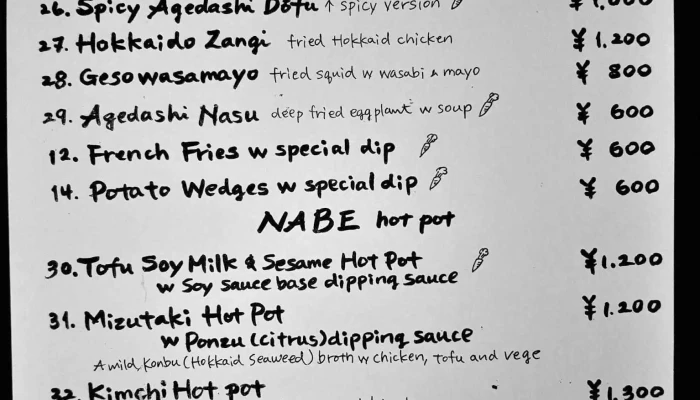 26. Spicy Agedashi Dofu ↑ spicy version ¥ 1,000
27. Hokkaido Zangi fried Hokkaid chicken ¥ 1.200
28. Gesowasamayo fried squid w wasabi & mayo ¥ 800
29. Agedashi Nasu deep fried eggplant w soup ¥ 600
12. French Fries w special dip ¥ 600
14. Potato Wedges w special dip ¥ 600
NABE hot pot
30. Tofu Soy Milk & Sesame Hot Pot ¥1.200
w Soy sauce base dipping sauce
31. Mizutaki Hot Pot ¥1.200
w Ponzu (citrus) dipping sauce
A wild, Konbu (Hokkaid Seaweed) broth w chicken, tofu and vege
32. Kimchi Hot pot ¥1,300